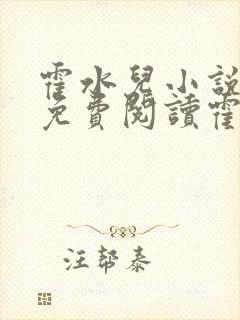 霍水兒小說
免費閱讀霍
汪幫泰